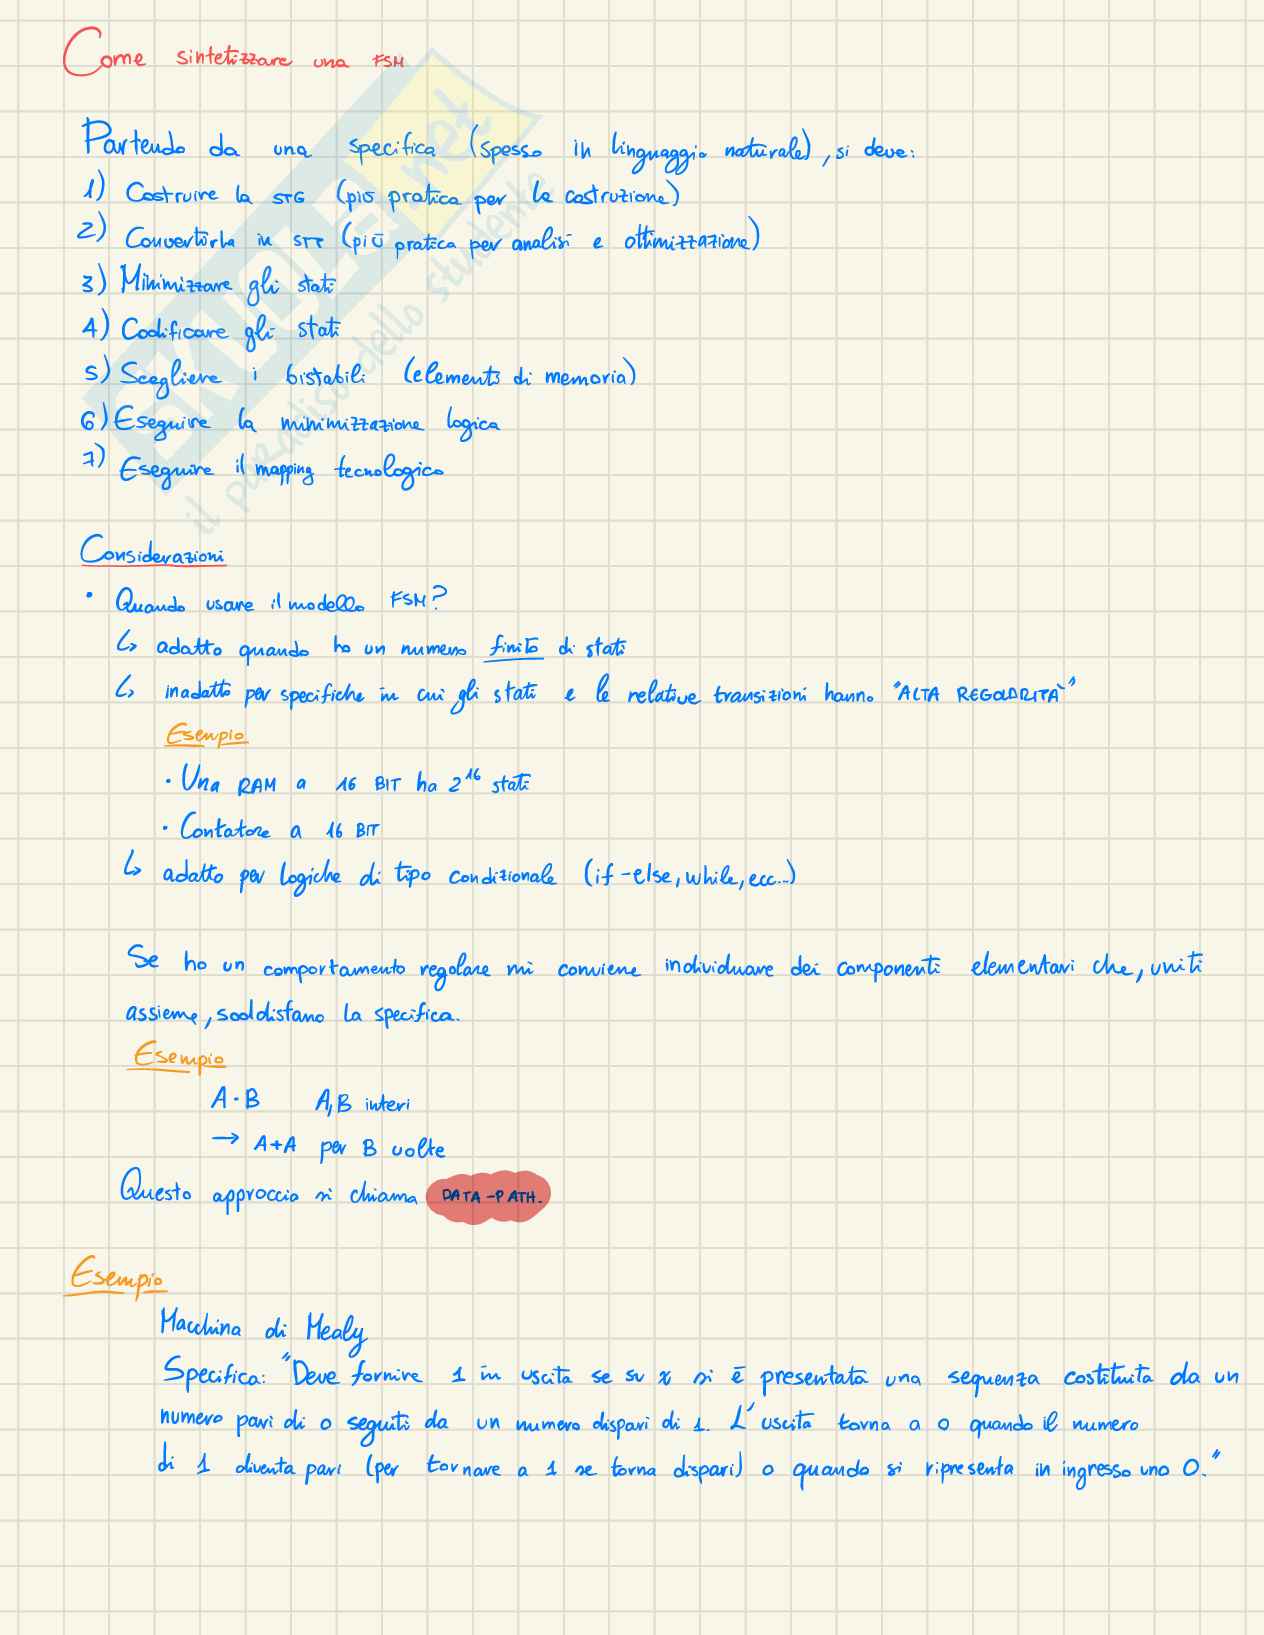 Come sintetizzare una FSM
Partendo da una specifica (spesso in linguaggio naturale), si deve:
1) Costruire la STG (più pratica per la costruzione)
2) Convertirla in STT (più pratica per analisi e ottimizzazione)
3) Minimizzare gli stati
4) Codificare gli stati
5) Scegliere i bistabili (elementi di memoria)
6) Eseguire la minimizzazione logica
7) Eseguire il mapping tecnologico
SKUOLA.net
il paradiso dello studente
Considerazioni
• Quando usare il modello FSM?
↳ adatto quando ho un numero finito di stati
↳ inadatto per specifiche in cui gli stati e le relative transizioni hanno "ALTA REGOLARITÀ"
Esempio
• Una RAM a 16 BIT ha 2^16 stati
• Contatore a 16 BIT
↳ adatto per logiche di tipo condizionale (if-else, while, ecc...)
Se ho un comportamento regolare mi conviene individuare dei componenti elementari che, uniti
assieme, soddisfano la specifica.
Esempio
A · B A, B interi
→ A+A per B volte
Questo approccio si chiama DATA-PATH.
Esempio
Macchina di Mealy
Specifica: "Deve fornire 1 in uscita se su x si è presentata una sequenza costituita da un
numero pari di 0 seguiti da un numero dispari di 1. L'uscita torna a 0 quando il numero
di 1 diventa pari (per tornare a 1 se torna dispari) o quando si ripresenta in ingresso uno 0."